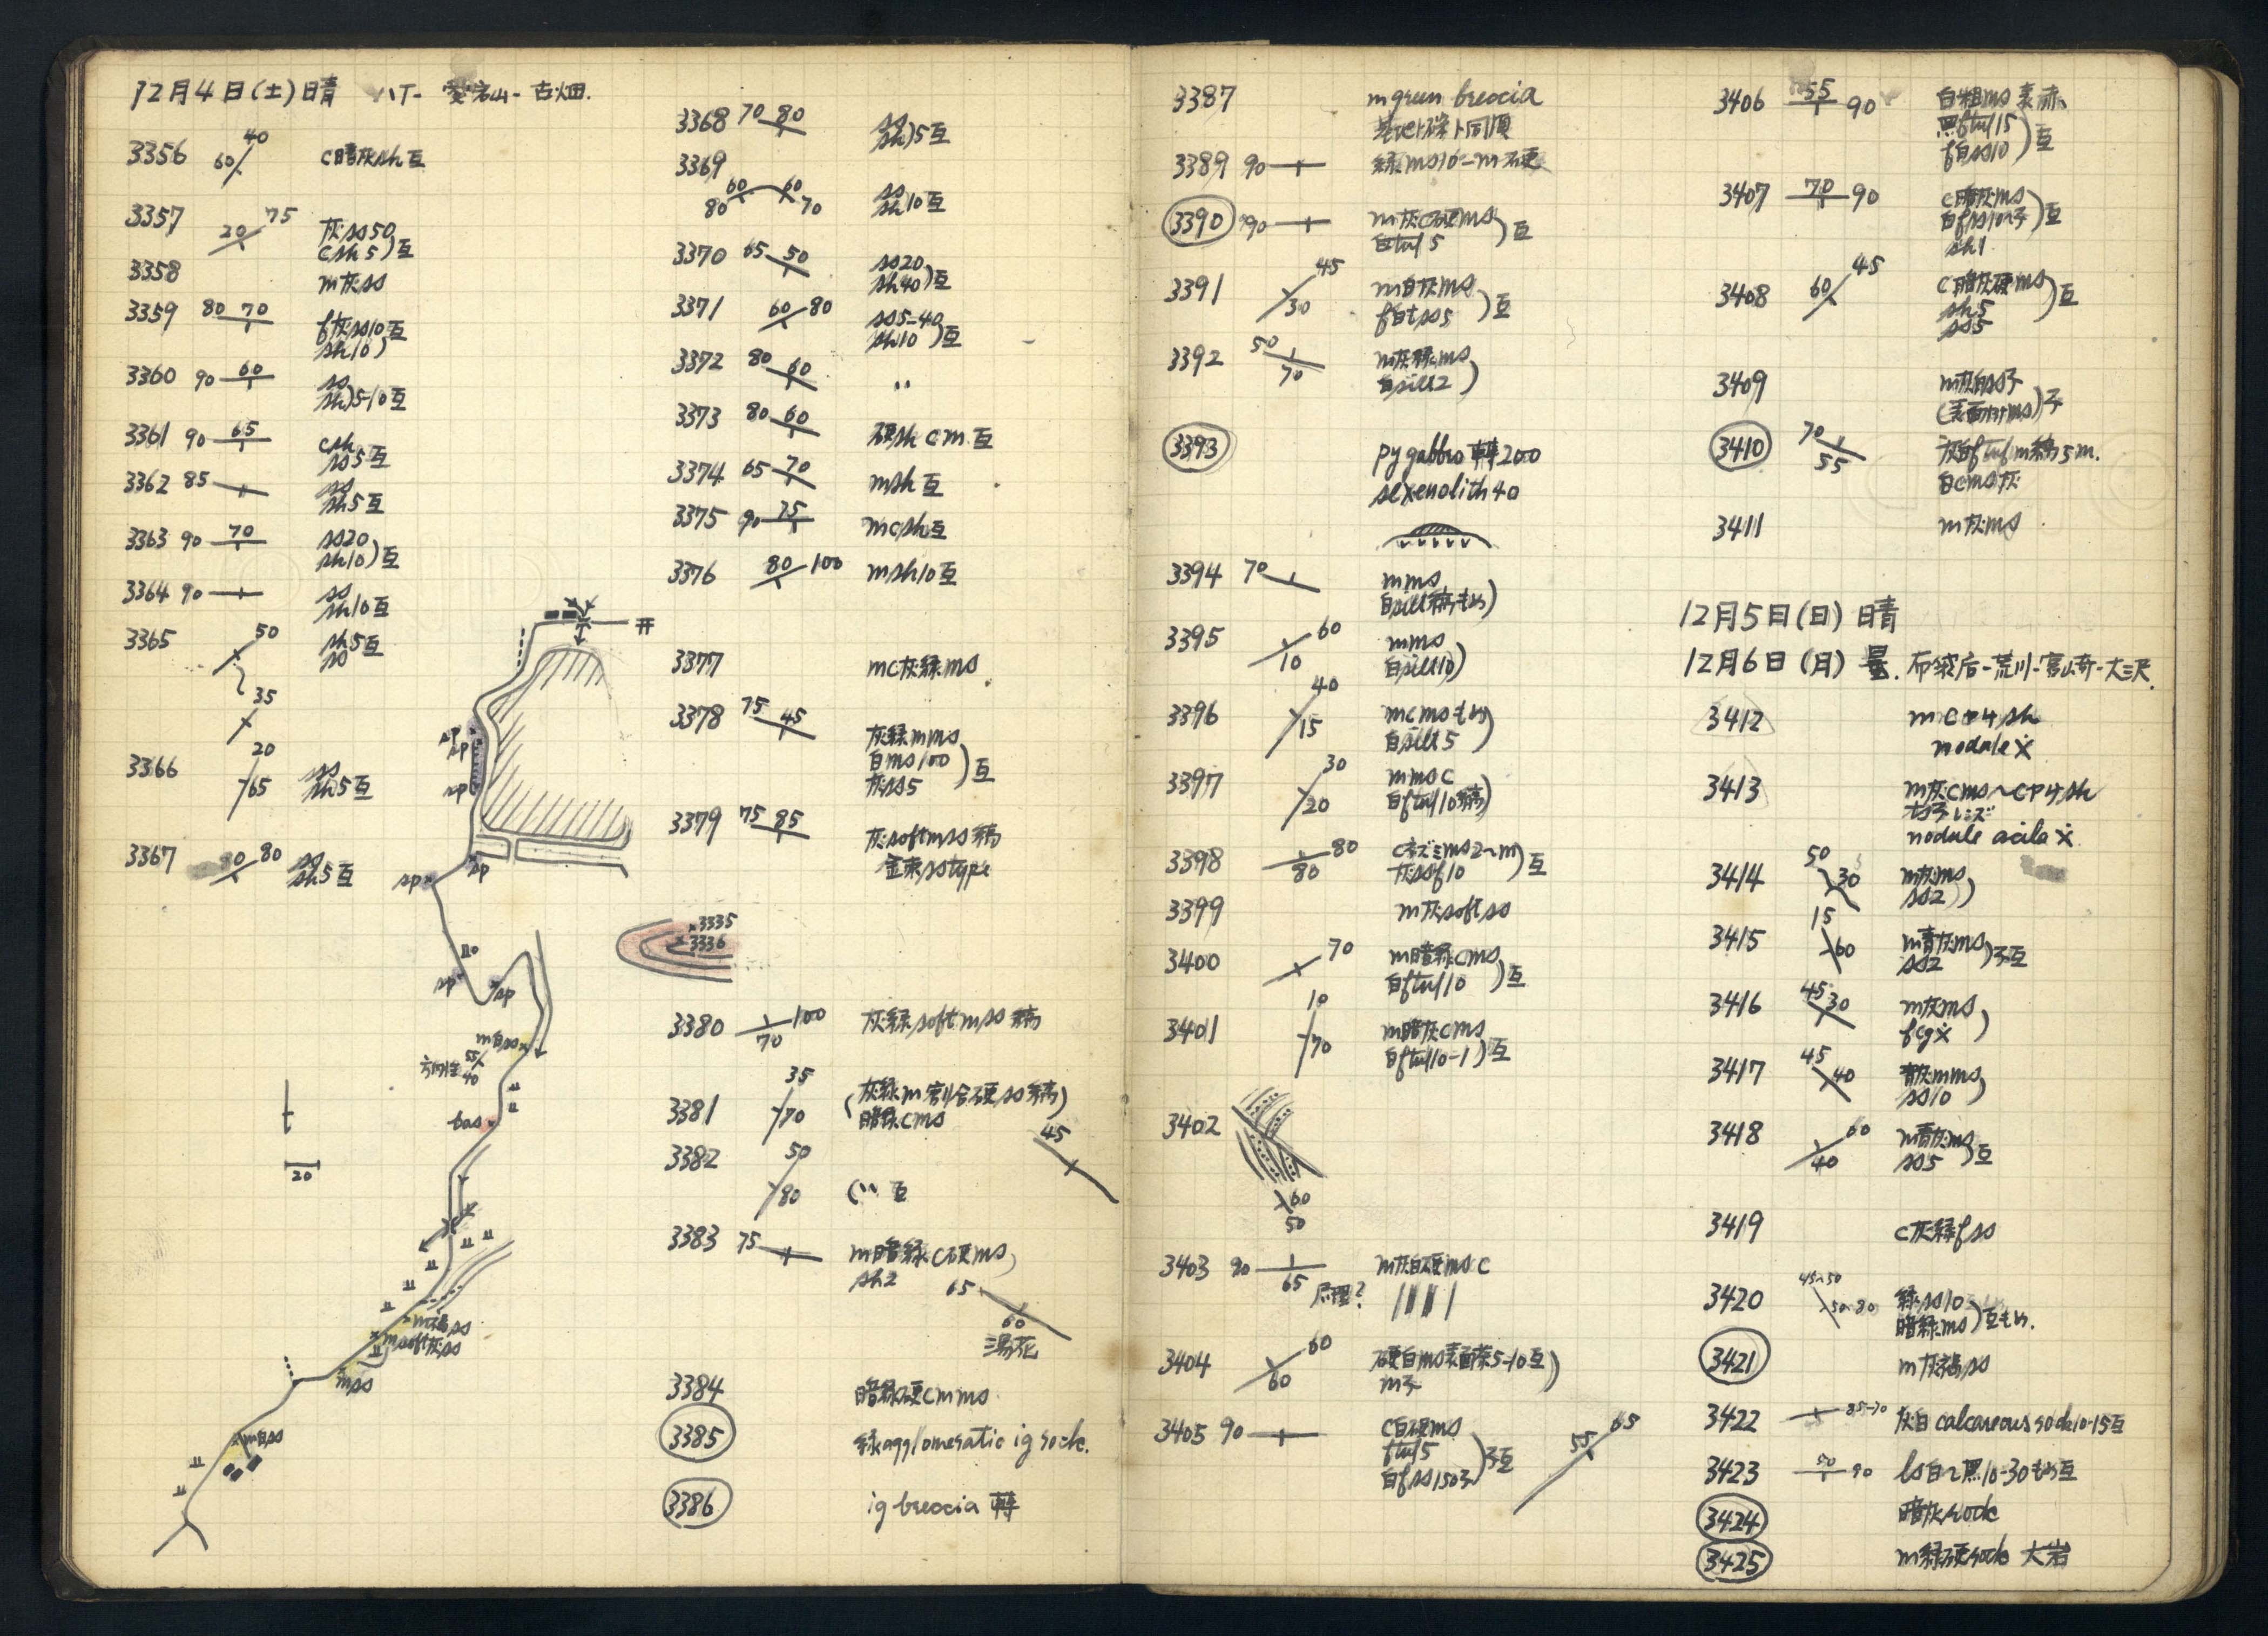 12月4日(土)晴 八丁-愛宕山-古畑.
3356 60 40 c暗灰sh互
3357 20 75 灰ss50
csh5)互
3358 m灰ss
3359 80 70 f灰ss10互
sh10)
3360 90 60 ss
sh)5-10互
3361 90 65 csh
ss5互
3362 85 ss
sh5互
3363 90 70 ss20
sh10)互
3364 90 ss
sh10互
3365 50 sh5互
ss
35
3366 20 65 ss
sh5互
3367 80 80 ss
sh5互
sp
sp
sp
sp
sp
sp
sp
m白ss
55
40
bas
20
m褐ss
msoft灰ss
mss
m白ss
3368 70 80 ss
sh)5互
3369
80 60 60 70 ss
sh10互
3370 65 50 ss20
sh40)互
3371 60 80 ss5-40
sh10)互
3372 80 60 〃
3373 80 60 硬sh cm互
3374 65 70 msh互
3375 90 75 mcsh互
3376 80 100 msh10互
3377 mc灰緑ms
3378 75 45 灰緑mms
白ms100)互
灰ss5
3379 75 85 灰softmss縞
金原sstype
3335
3336
3380 100 70 灰緑softmss縞
3381 35 70 (灰緑m割合硬ss縞)
暗緑cms
45
3382 50 80 (〃互
3383 75 m暗緑c硬ms)
sh2
65
60
湯花
3384 暗緑硬cmms
3385 緑agglomeratic ig rock.
3386 ig breccia 轉
3387 mgreen breccia
3389 90 緑ms10-m硬
3390 90 m灰c硬ms
白tuf5)互
3391 45 30 m白灰ms
f白tss5)互
3392 50 70 m灰緑ms
白silt2)
3393 py gabbro 轉200
sexenolith40
3394 70 mms
白silt縞もめ)
3395 60 10 mms
白silt10)
3396 40 15 mcmsもめ)
白silt5
3397 30 20 mmsc
白ftuf10縞)
3398 80 80 cネズミms2~m)互
灰ssf10
3399 m灰softss
3400 70 m暗緑cms
白ftuf10)互
3401 10 70 m暗灰cms
白ftuf10-1)互
3402
60
50
3403 90 65 m灰白硬msc
片理?
3404 60 60 硬白ms表面茶5-10互)
m子
3405 90 c白硬ms
ftuf5)子互
白fss150子
55 65
3406 55 90 白粗ms表赤
黒ftuf15)互
f白ss10
3407 70 90 c暗灰ms
白fss10~子)互
sh1
3408 60 45 c暗灰硬ms
sh5)互
ss5
3409 m灰白ss子
3410 70 55 灰白ftufm縞5m.
白cms灰
3411 m灰ms
12月5日(日) 晴
12月6日(月) 曇. 布袋店-荒川-宮崎-大沢
3412 mcP4sh
nodule ẋ
3413 m灰cms~cP4sh
nodule acila ẋ
3414 50 30 m灰ms
ss2)
3415 15 60 m青灰ms
ss2)子互
3416 45 30 m灰ms
fcgẋ)
3417 45 40 青灰mms
ss10)
3418 60 40 m青灰ms
ss5)互
3419 c灰緑fss
3420 45~50 50~80 緑ss10
暗緑ms)互もめ.
3421 m灰褐ss
3422 85-70 灰白calcareous rock10-15互
3423 50 90 ls白~黒10-30もめ互
3424 暗灰rock
3425 m緑硬rock 大岩